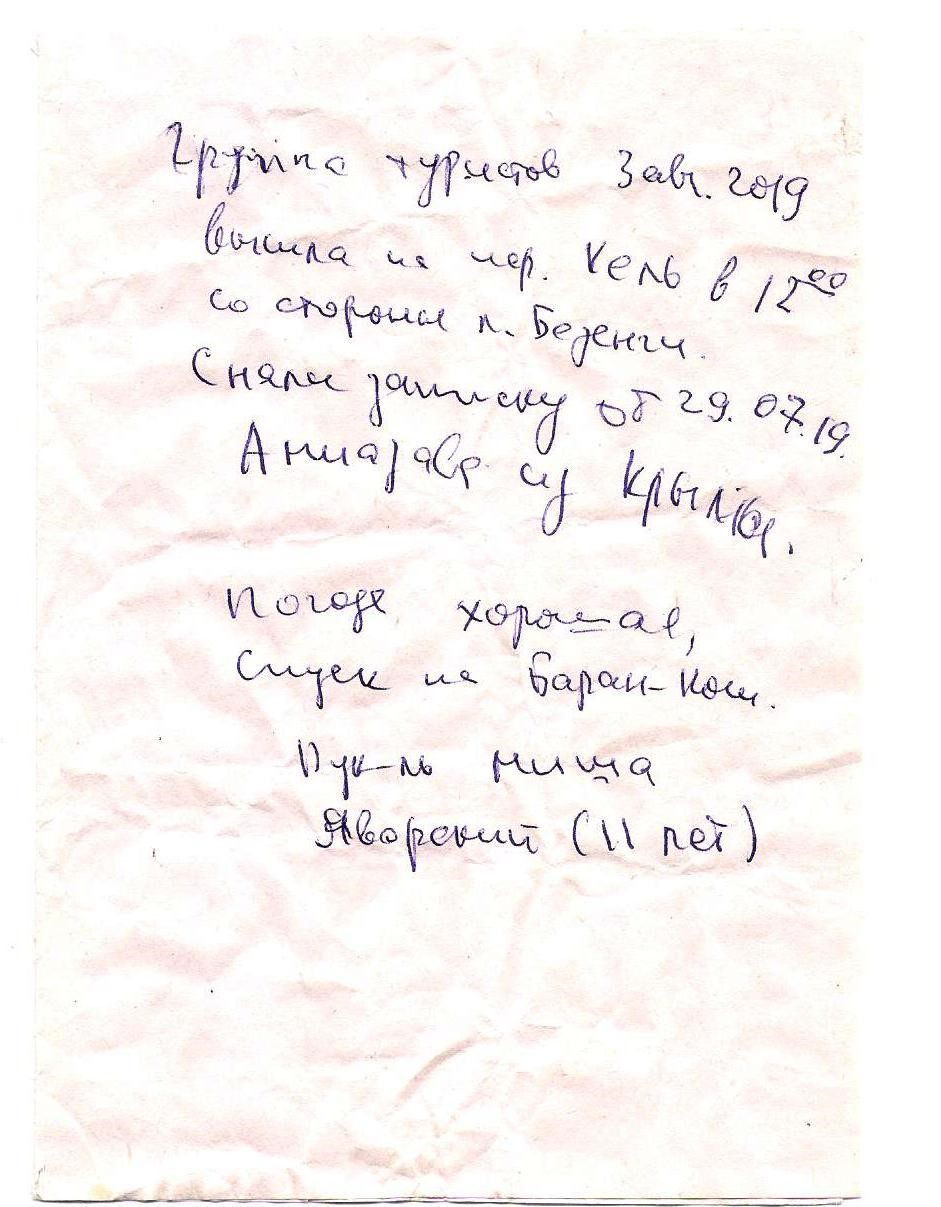 Группа туристов 3 авг. 2019
вышла на пер. Кель в 12⁰⁰
со стороны л. Безенги.
Сняли записку от 29.07.19.
из Крыма.
Погода хорошая,
Спуск на Баран-Кош.
Рук-ль Миша
Яворский (11 лет)